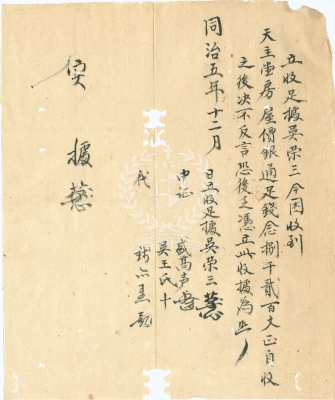 立收足據吳榮三今因收到
天主堂房屋價銀通足錢念捌千貳百文正自收
之後決不反言恐後乏憑立此收據為照
同治五年十二月 日立收足據吳榮三
中証 盛高声
吳王氏十
代
實據